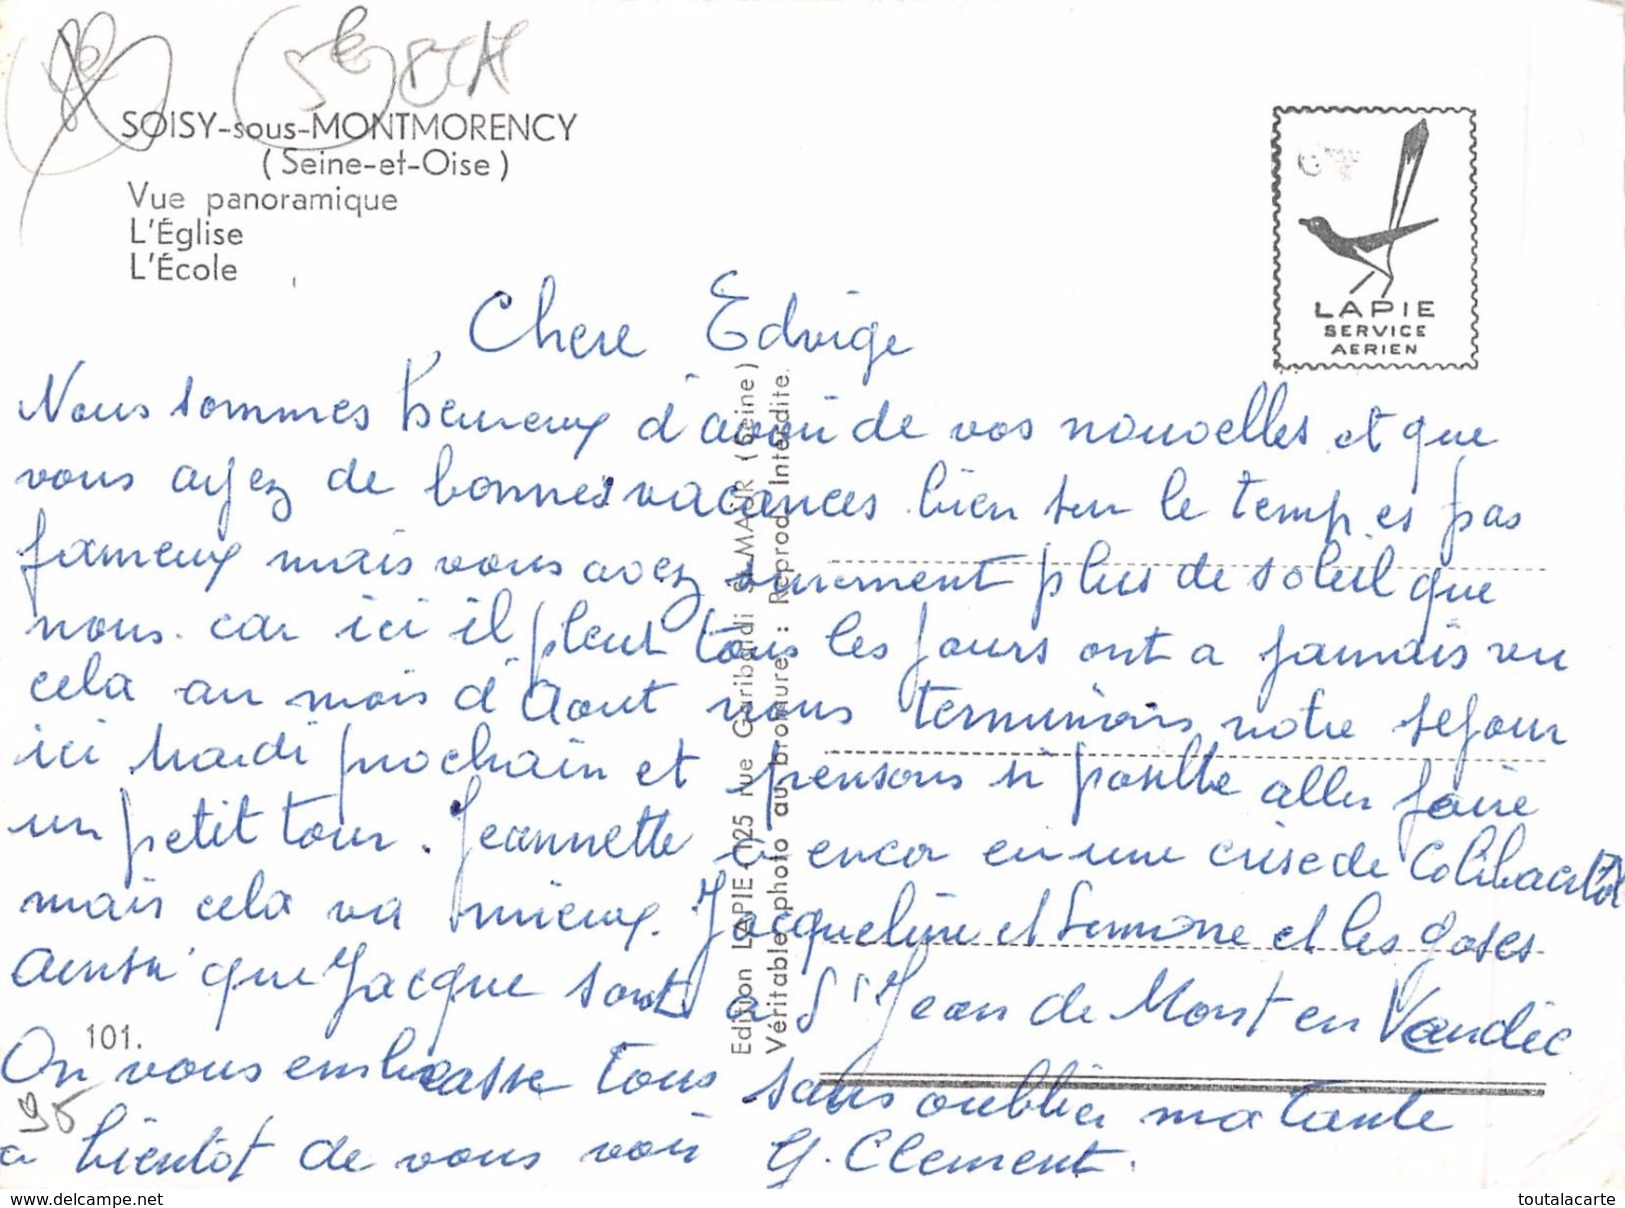 SOISY-sous-MONTMORENCY
(Seine-et-Oise)
Vue panoramique
L'Église
L'École
LAPIE
SERVICE
AERIEN
Chere Edvige
Nous sommes heureux d'avoir de vos nouvelles et que
vous ayez de bonnes vacances bien sur le temp es pas
fameux mais vous avez surement plus de soleil que
nous. car ici il pleut tous les jours ont a jamais vu
cela au mois d'Aout nous terminons notre sejour
ici mardi prochain et pensons si possible aller faire
un petit tour. Jeannette a encor eu une crise de
mais cela va mieux. Jacqueline et Simone et les goses
ainsi que Jacque sont a St Jean de Mont en Vandée
On vous embrasse tous sans oublier ma tante
a bientôt de vous voir G. Clement.
Edition LAPIE 125 rue Garibaldi St MAUR (Seine)
Véritable photo au bromure : Reprod. Interdite.
101.
95
www.delcampe.net
toutalacarte